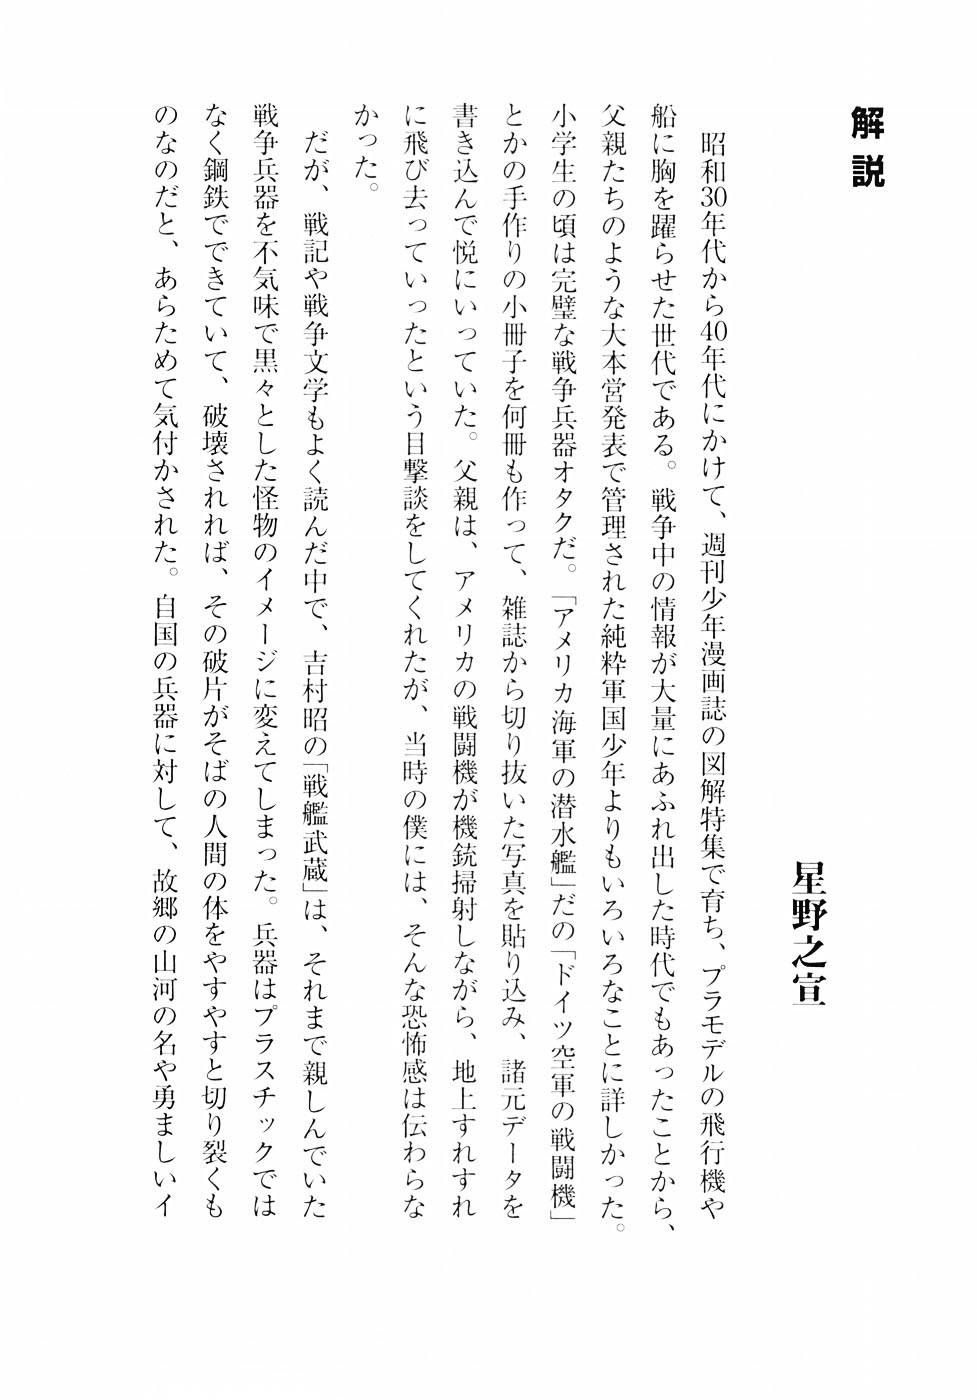 解説
星野之宣
昭和30年代から40年代にかけて、週刊少年漫画誌の図解特集で育ち、プラモデルの飛行機や
船に胸を躍らせた世代である。戦争中の情報が大量にあふれ出した時代でもあったことから、
父親たちのような大本営発表で管理された純粋軍国少年よりもいろいろなことに詳しかった。
小学生の頃は完璧な戦争兵器オタクだ。「アメリカ海軍の潜水艦」だの「ドイツ空軍の戦闘機」
とかの手作りの小冊子を何冊も作って、雑誌から切り抜いた写真を貼り込み、諸元データを
書き込んで悦にいっていた。父親は、アメリカの戦闘機が機銃掃射しながら、地上すれすれ
に飛び去っていったという目撃談をしてくれたが、当時の僕には、そんな恐怖感は伝わらな
かった。
だが、戦記や戦争文学もよく読んだ中で、吉村昭の「戦艦武蔵」は、それまで親しんでいた
戦争兵器を不気味で黒々とした怪物のイメージに変えてしまった。兵器はプラスチックでは
なく鋼鉄でできていて、破壊されれば、その破片がそばの人間の体をやすやすと切り裂くも
のなのだと、あらためて気付かされた。自国の兵器に対して、故郷の山河の名や勇ましいイ